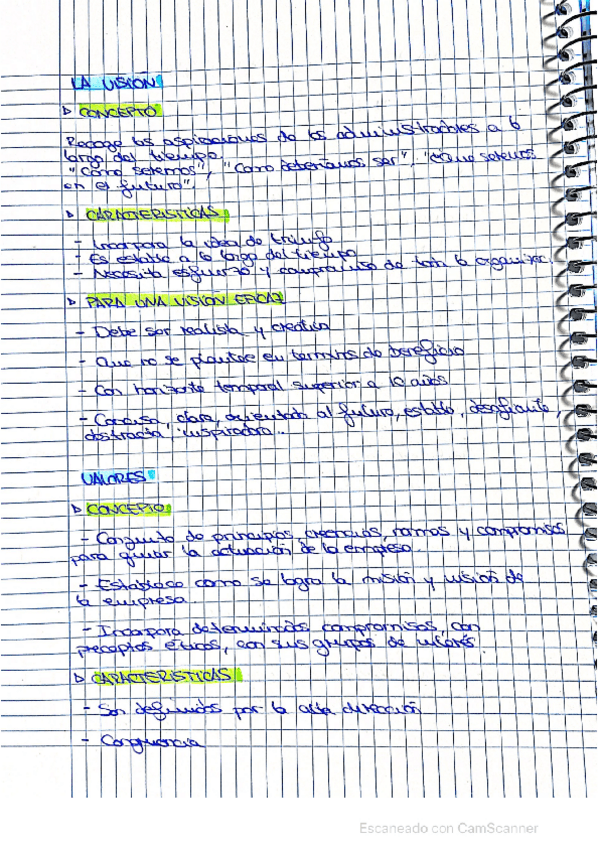 LA VISION
▷ CONCEPTO
Recoge las aspiraciones de los administradores a lo
largo del tiempo
"Como seremos", "Como deberíamos ser", "Que seremos
en el futuro".
▷ CARACTERISTICAS
- Incorpora la idea de triunfo
- Es estable a lo largo del tiempo
- Necesita esfuerzo y compromiso de toda la organizac.
▷ PARA UNA VISION EFICAZ
- Debe ser realista y creativa
- Que no se plantee en terminos de beneficio
- Con horizonte temporal superior a 10 años
- Concisa, clara, orientada al futuro, estable, desafiante,
abstracta, inspiradora..
VALORES
▷ CONCEPTO
- Conjunto de principios, creencias, normas y compromisos
para guiar la actuación de la empresa.
- Establece como se logra la misión y visión de
la empresa.
- Incorpora determinados compromisos, con
preceptos éticos, con sus grupos de interés.
▷ CARACTERISTICAS
- Son definidos por la alta dirección
- Congruencia
Escaneado con CamScanner